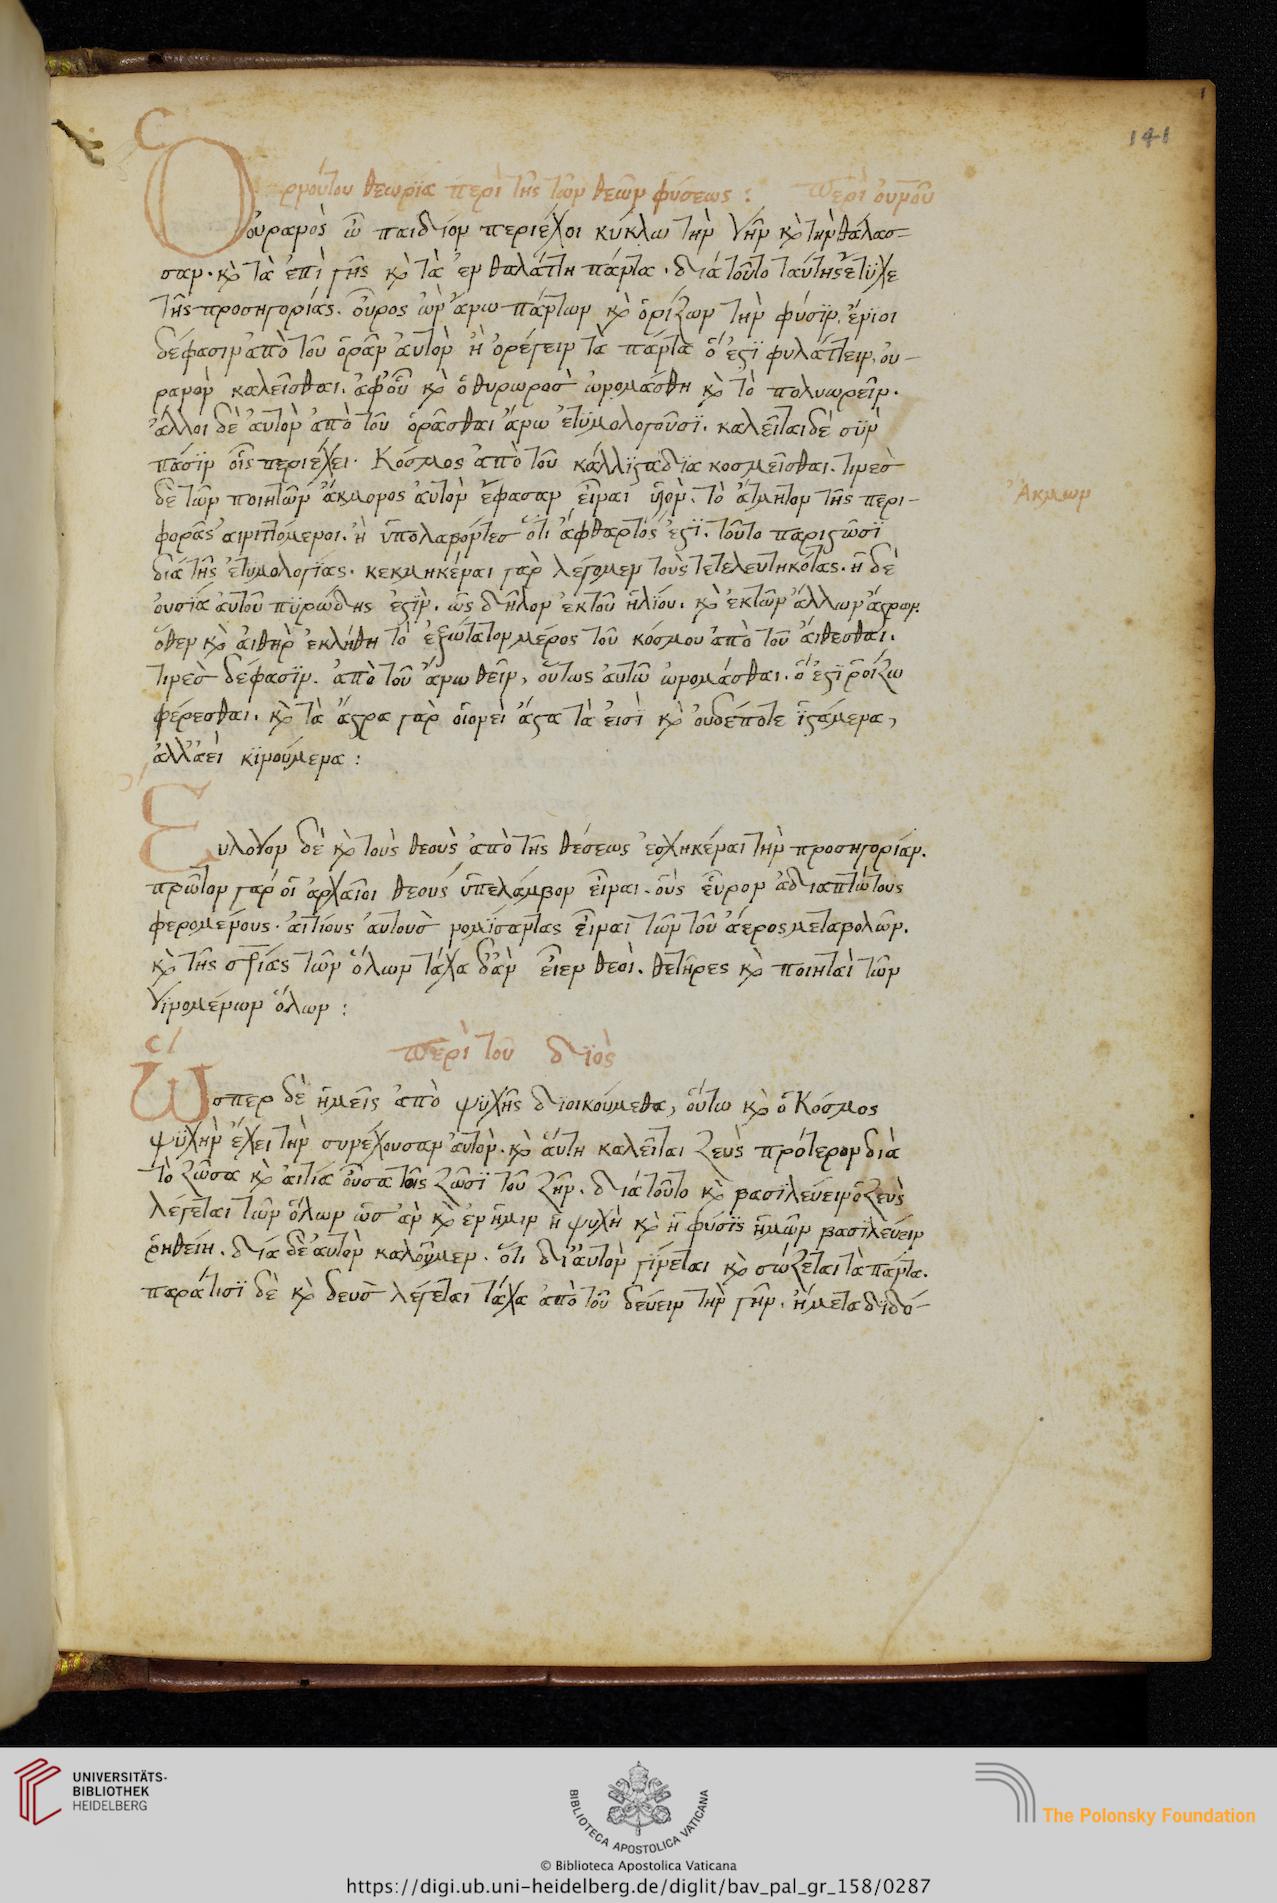 141
ρμούτου θεωρΐα περὶ τῆς τῶν θεῶν φύσεως : Περὶ οὐνοῦ
Ὁ οὐρανὸς ὦ παιδίον περιέχοι κύκλω τὴν γῆν κ̀ τὴν θάλασ=
σαν. κ̀ τὰ ἐπὶ γῆς κ̀ τὰ ἐν θαλάττη πάντα. διά τοῦτο ταύτης ἔτϋχε
τῆς προσηγορίας. οὖρος ὢν ἄνω πάντων κ̀ ὁρίζων τὴν φύσϊν. ἔνϊοι
δέ φασιν ἀπὸ τοῦ ὁρᾶν ἀυτὸν ἢ ὀρέγειν τὰ πάντα ὅ ἐστϊ φυλάττειν, ου-
ρανὸν καλεῖσθαι. ἀφοὗ κ̀ ὁ θυρωροσ ὠνομάσθη κ̀ τὸ πολυωρεῖν.
ἄλλοι δὲ ἀυτὸν ἀπὸ τοῦ ὁρᾶσθαι ἄνω ἐτϋμολογοῦσϊ. καλεῖται δὲ σϋν
πᾶσϊν οἷς περιέχει. Κόσμος ἀπὸ τοῦ κάλλϊστα δϊα κοσμεῖσθαι. τινεσ
δὲ τῶν ποιητῶν ἄκμονος ἀυτὸν ἔφασαν εἶναι ϋἱὸν. τὸ ἄτμητον τῆς περι-
Ἄκμων
φορᾶς αινιττόμενοι. ἢ ὑπολαβόντεσ ὅτι ἄφθαρτός ἐστϊ. τοῦτο παριστῶσϊ
διὰ τῆς ἐτυμολογίας. κεκμηκέναι γὰρ λέγομεν τοὺς τετελευτηκότας. ἡ δὲ
ὀυσία ἀυτοῦ πϋρώδης ἐστϊν. ὡς δῆλον ἐκ τοῦ ἡλίου. κ̀ ἐκ τῶν ἄλλων ἄστρων.
ὅθεν κ̀ ἀιθὴρ ἐκλήθη τὸ ἐξώτατον μέρος τοῦ κόσμου ἀπὸ τοῦ ἄιθεσθαι.
τινὲσ δέ φασϊν. ἀπὸ τοῦ ἄνω θεῖν, οὕτως ἀυτῶ ὠνομάσθαι. ὅ ἐστϊ ῥοίζω
φέρεσθαι. κ̀ τὰ ἄστρα γὰρ οἱονεὶ ἄστα τά ἐισὶ κ̀ ὀυδέποτε ἱστάμενα,
ἀλλ' ἀεὶ κϊνούμενα :
Ευλογον δὲ κ̀ τοὺς θεοὺς ἀπὸ τῆς θέσεως ἐσχηκέναι τὴν προσηγορίαν.
πρῶτον γάρ οἱ ἀρχαῖοι θεούς ὑπελάμβον εἶναι. οὓς εὗρον ἀδιαπτώτους
φερομένους. ἀιτίους ἀυτουσ νομϊσαντας εἶναι τῶν τοῦ ἀέρος μεταβολῶν.
κ̀ τῆς σρίας τῶν ὅλων τάχα δ' ἀν εἶεν θεοὶ. θετῆρες κ̀ ποιηταὶ τῶν
γϊνομένων ὅλων :
Περὶ τοῦ δϊὸς
Ὥσπερ δὲ ἡμεῖς ἀπὸ ψϋχῆς δϊοικούμεθα, οὕτω κ̀ ὁ Κόσμος
ψϋχὴν ἔχει τὴν συνέχουσαν ἀυτὸν. κ̀ ἅυτη καλεῖται ζεὺς πρότερον διὰ
τὸ ζῶσα κ̀ ἀιτία οὖσα τοῖς ζῶσϊ τοῦ ζῆν. διά τοῦτο κ̀ βασϊλεύειν ὁ ζεὺς
λέγεται τῶν ὅλων ὡσ ἂν κ̀ ἐν ἡμιν ἡ ψυχὴ κ̀ ἡ φύσϊς ἡμῶν βασϊλεύειν
ῥηθείη. δία δὲ ἀυτὸν καλοῦμεν. ὅτι δι' ἀυτὸν γίνεται κ̀ σώζεται τὰ πάντα.
παρά τισϊ δὲ κ̀ δευσ λέγεται τάχα ἀπὸ τοῦ δεύειν τὴν γῆν. ἢ μεταδϊδό-
UNIVERSITÄTS-
BIBLIOTHEK
HEIDELBERG
BIBLIOTECA APOSTOLICA VATICANA
The Polonsky Foundation
© Biblioteca Apostolica Vaticana
https://digi.ub.uni-heidelberg.de/diglit/bav_pal_gr_158/0287